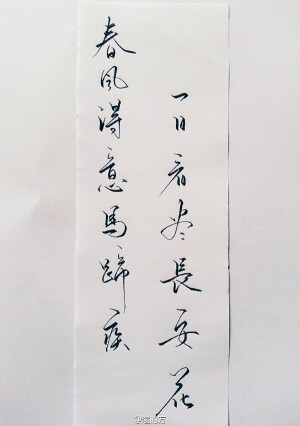 春风得意馬蹄疾
一日看尽長安花